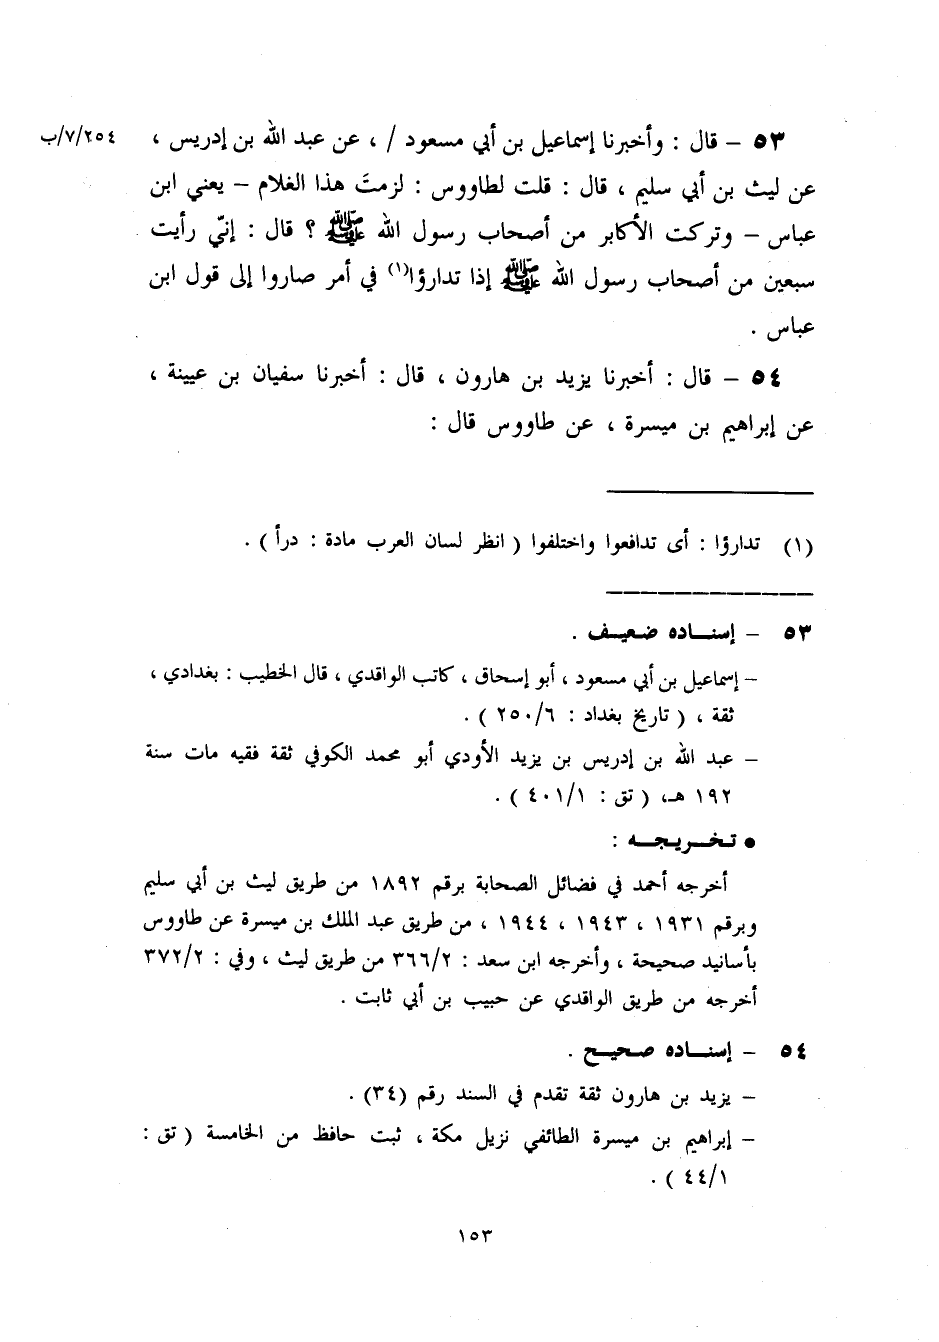 ٥٣ – قال : وأخبرنا إسماعيل بن أبي مسعود / ، عن عبد الله بن إدريس ، ٧/٢٥٤/ب
عن ليث بن أبي سليم ، قال : قلت لطاووس : لزمتَ هذا الغلام – يعني ابن
عباس – وتركت الأكابر من أصحاب رسول الله ﷺ ؟ قال : إنّي رأيت
سبعين من أصحاب رسول الله ﷺ إذا تدارؤا(١) في أمر صاروا إلى قول ابن
عباس .
٥٤ – قال : أخبرنا يزيد بن هارون ، قال : أخبرنا سفيان بن عيينة ،
عن إبراهيم بن ميسرة ، عن طاووس قال :
(١) تدارؤا : أى تدافعوا واختلفوا ( انظر لسان العرب مادة : درأ ) .
٥٣ – إسناده ضعيف .
– إسماعيل بن أبي مسعود ، أبو إسحاق ، كاتب الواقدي ، قال الخطيب : بغدادي ،
ثقة ، ( تاريخ بغداد : ٢٥٠/٦ ) .
– عبد الله بن إدريس بن يزيد الأودي أبو محمد الكوفي ثقة فقيه مات سنة
١٩٢ هـ، ( تق : ٤٠١/١ ) .
● تخريجه :
أخرجه أحمد في فضائل الصحابة برقم ١٨٩٢ من طريق ليث بن أبي سليم
وبرقم ١٩٣١ ، ١٩٤٣ ، ١٩٤٤ ، من طريق عبد الملك بن ميسرة عن طاووس
بأسانيد صحيحة ، وأخرجه ابن سعد : ٣٦٦/٢ من طريق ليث ، وفي : ٣٧٢/٢
أخرجه من طريق الواقدي عن حبيب بن أبي ثابت .
٥٤ – إسناده صحيح .
– يزيد بن هارون ثقة تقدم في السند رقم (٣٤) .
– إبراهيم بن ميسرة الطائفي نزيل مكة ، ثبت حافظ من الخامسة ( تق :
٤٤/١ ) .
١٥٣